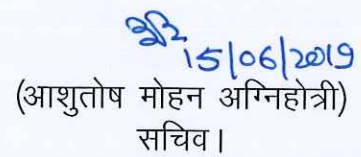 15/06/2019
(आशुतोष मोहन अग्निहोत्री)
सचिव।